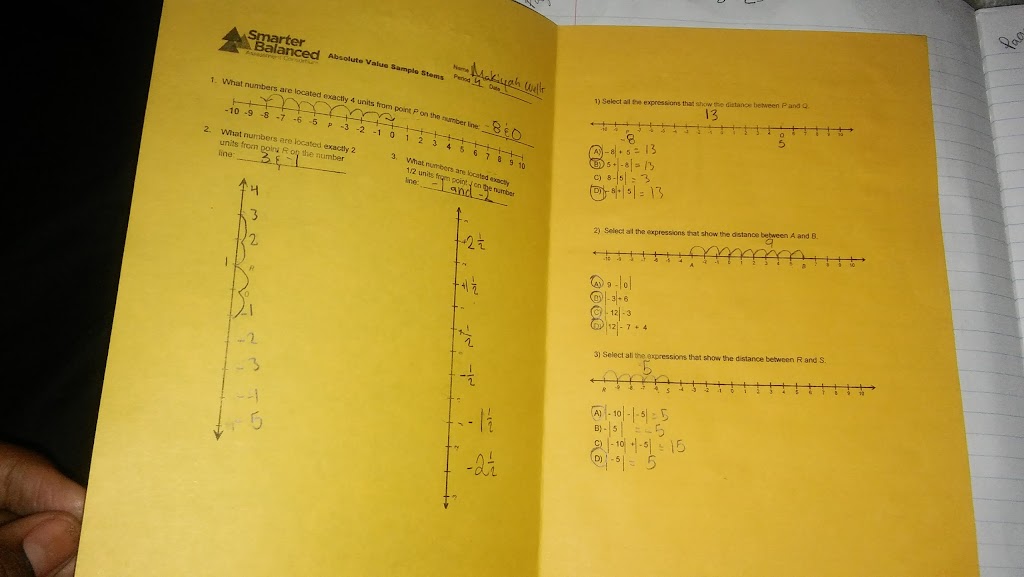 Smarter
Balanced
Assessment Consortium
Absolute Value Sample Stems
Name Makiyah Wells
Period 4 Date
1. What numbers are located exactly 4 units from point P on the number line: -8 & 0
-10 -9 -8 -7 -6 -5 P -3 -2 -1 0 1 2 3 4 5 6 7 8 9 10
2. What numbers are located exactly 2
units from point R on the number
line: 3 & -1
4
3
2
1
0
-1
-2
-3
-1
5
3. What numbers are located exactly
1/2 units from point J on the number
line: -1 and -2
+2 1/2
+1 1/2
+1/2
-1/2
-1 1/2
-2 1/2
1) Select all the expressions that show the distance between P and Q.
13
-8
5
A) |-8| + 5 = 13
B) 5 + |-8| = 13
C) 8 - |5| = 3
D) |-8| + |5| = 13
2) Select all the expressions that show the distance between A and B.
9
A) 9 - |0|
B) |-3| + 6
C) |-12| - 3
D) |12| - 7 + 4
3) Select all the expressions that show the distance between R and S.
5
A) |-10| - |-5| = 5
B) -|5| = -5
C) |-10| + |-5| = 15
D) |-5| = 5